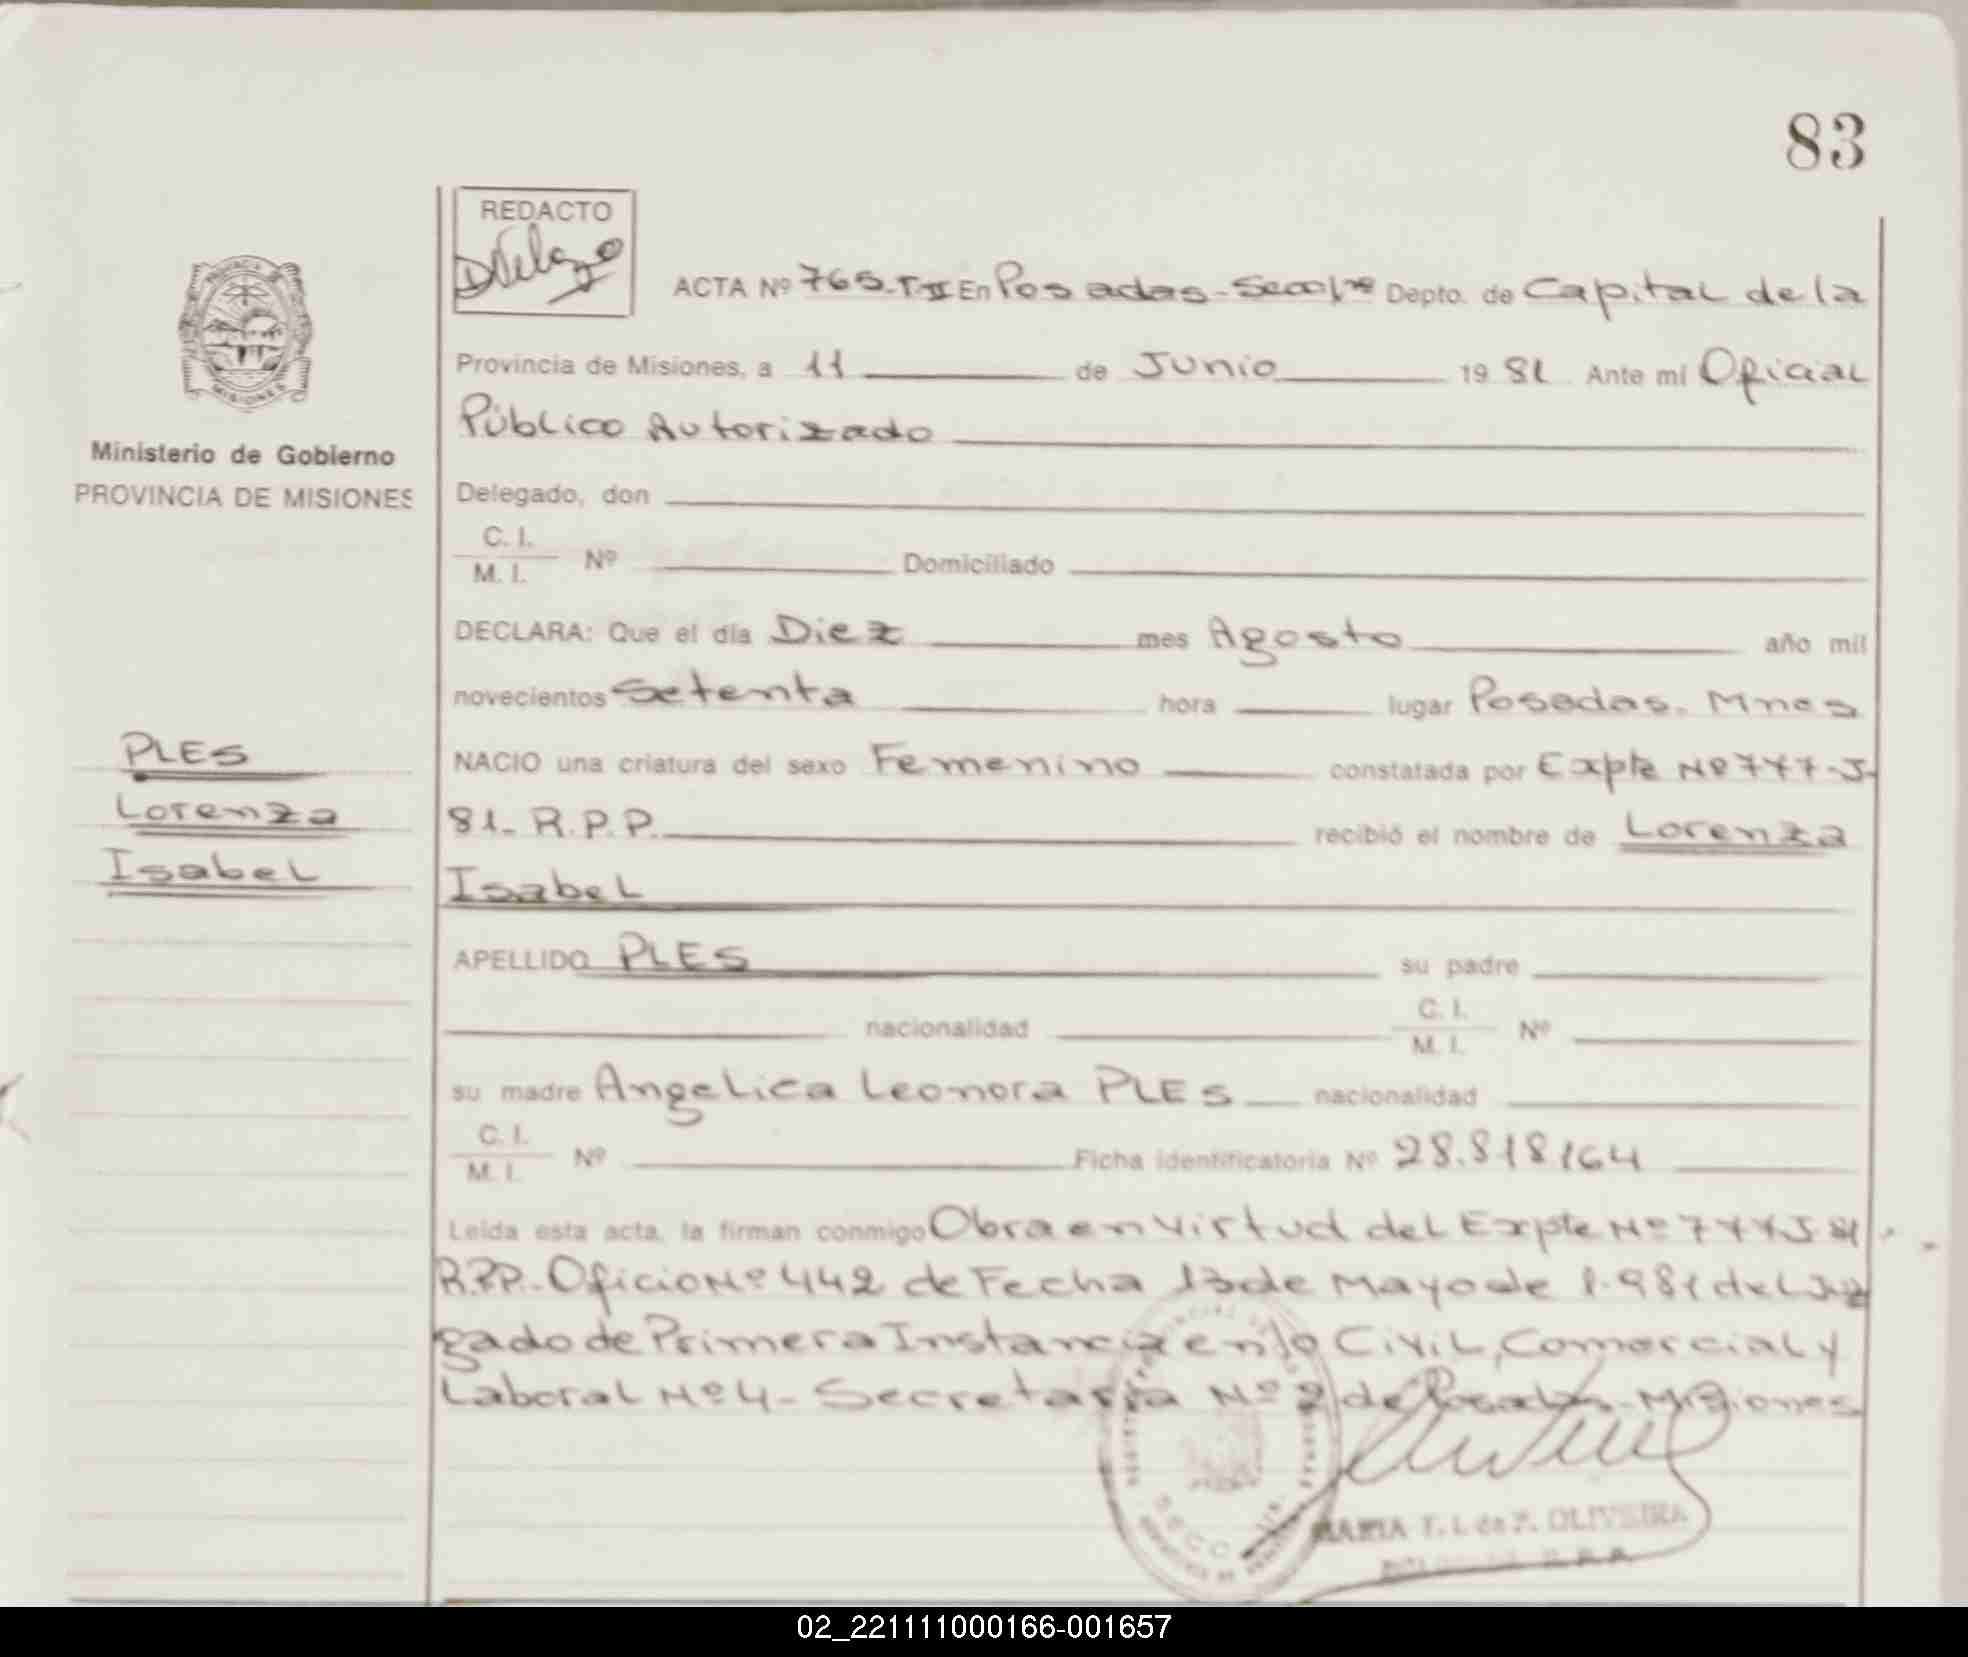 83
REDACTO
ACTA Nº 765-T-II En Posadas-Secc 1ra Depto. de Capital de la
Provincia de Misiones, a 11 de Junio 19 81 Ante mí Oficial
Público Autorizado
Ministerio de Gobierno
PROVINCIA DE MISIONES
Delegado, don
C. I.
M. I. Nº Domiciliado
DECLARA: Que el día Diez mes Agosto año mil
novecientos Setenta hora lugar Posadas. Mnes
NACIO una criatura del sexo Femenino constatada por Expte Nº 777-J-
81- R.P.P. recibió el nombre de Lorenza
Isabel
PLES
Lorenza
Isabel
APELLIDO PLES su padre
nacionalidad C. I.
M. I. Nº
su madre Angelica Leonora PLES nacionalidad
C. I.
M. I. Nº Ficha identificatoria Nº 28.818164
Leída esta acta, la firman conmigo Obra en virtud del Expte Nº 777J-81
R.P.P.- Oficio Nº 442 de Fecha 13 de Mayo de 1.981 del Juz
gado de Primera Instancia en lo Civil, Comercial y
Laboral Nº 4- Secretaria Nº 2 de Posadas-Misiones
MARIA T. L. de F. OLIVEIRA
02_221111000166-001657